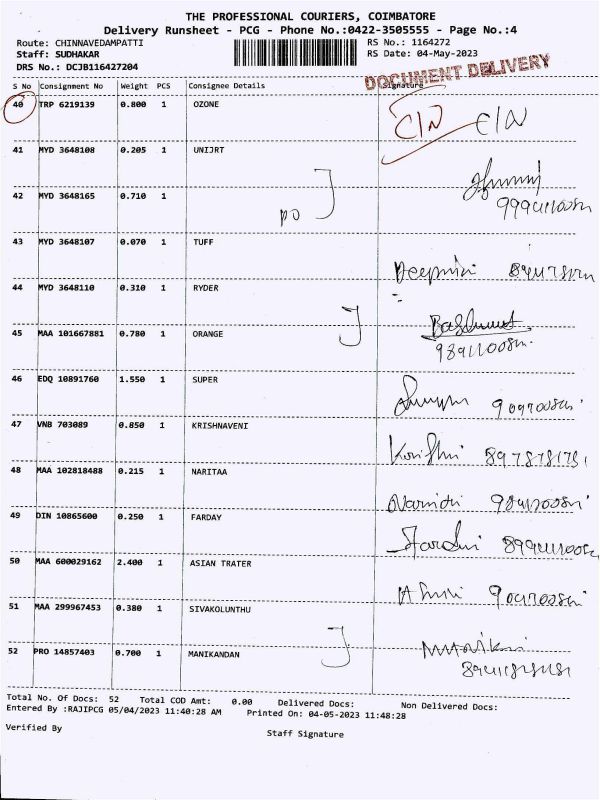 THE PROFESSIONAL COURIERS, COIMBATORE
Delivery Runsheet - PCG - Phone No.:0422-3505555 - Page No.:4
Route: CHINNAVEDAMPATTI RS No.: 1164272
Staff: SUDHAKAR RS Date: 04-May-2023
DRS No.: DCJB116427204
DOCUMENT DELIVERY
S No Consignment No Weight PCS Consignee Details Signature
40 TRP 6219139 0.800 1 OZONE
41 MYD 3648108 0.205 1 UNIJRT
42 MYD 3648165 0.710 1
43 MYD 3648107 0.070 1 TUFF
44 MYD 3648110 0.310 1 RYDER
45 MAA 101667881 0.780 1 ORANGE
46 EDQ 10891760 1.550 1 SUPER
47 VNB 703089 0.850 1 KRISHNAVENI
48 MAA 102818488 0.215 1 NARITAA
49 DIN 10865600 0.250 1 FARDAY
50 MAA 600029162 2.400 1 ASIAN TRATER
51 MAA 299967453 0.380 1 SIVAKOLUNTHU
52 PRO 14857403 0.700 1 MANIKANDAN
Total No. Of Docs: 52 Total COD Amt: 0.00 Delivered Docs: Non Delivered Docs:
Entered By :RAJIPCG 05/04/2023 11:40:28 AM Printed On: 04-05-2023 11:48:28
Verified By Staff Signature